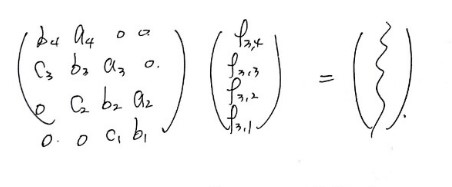 b4 a4 0 0
c3 b3 a3 0.
0 c2 b2 a2
0. 0 c1 b1
f3,4
f3,3
f3,2
f3,1
=